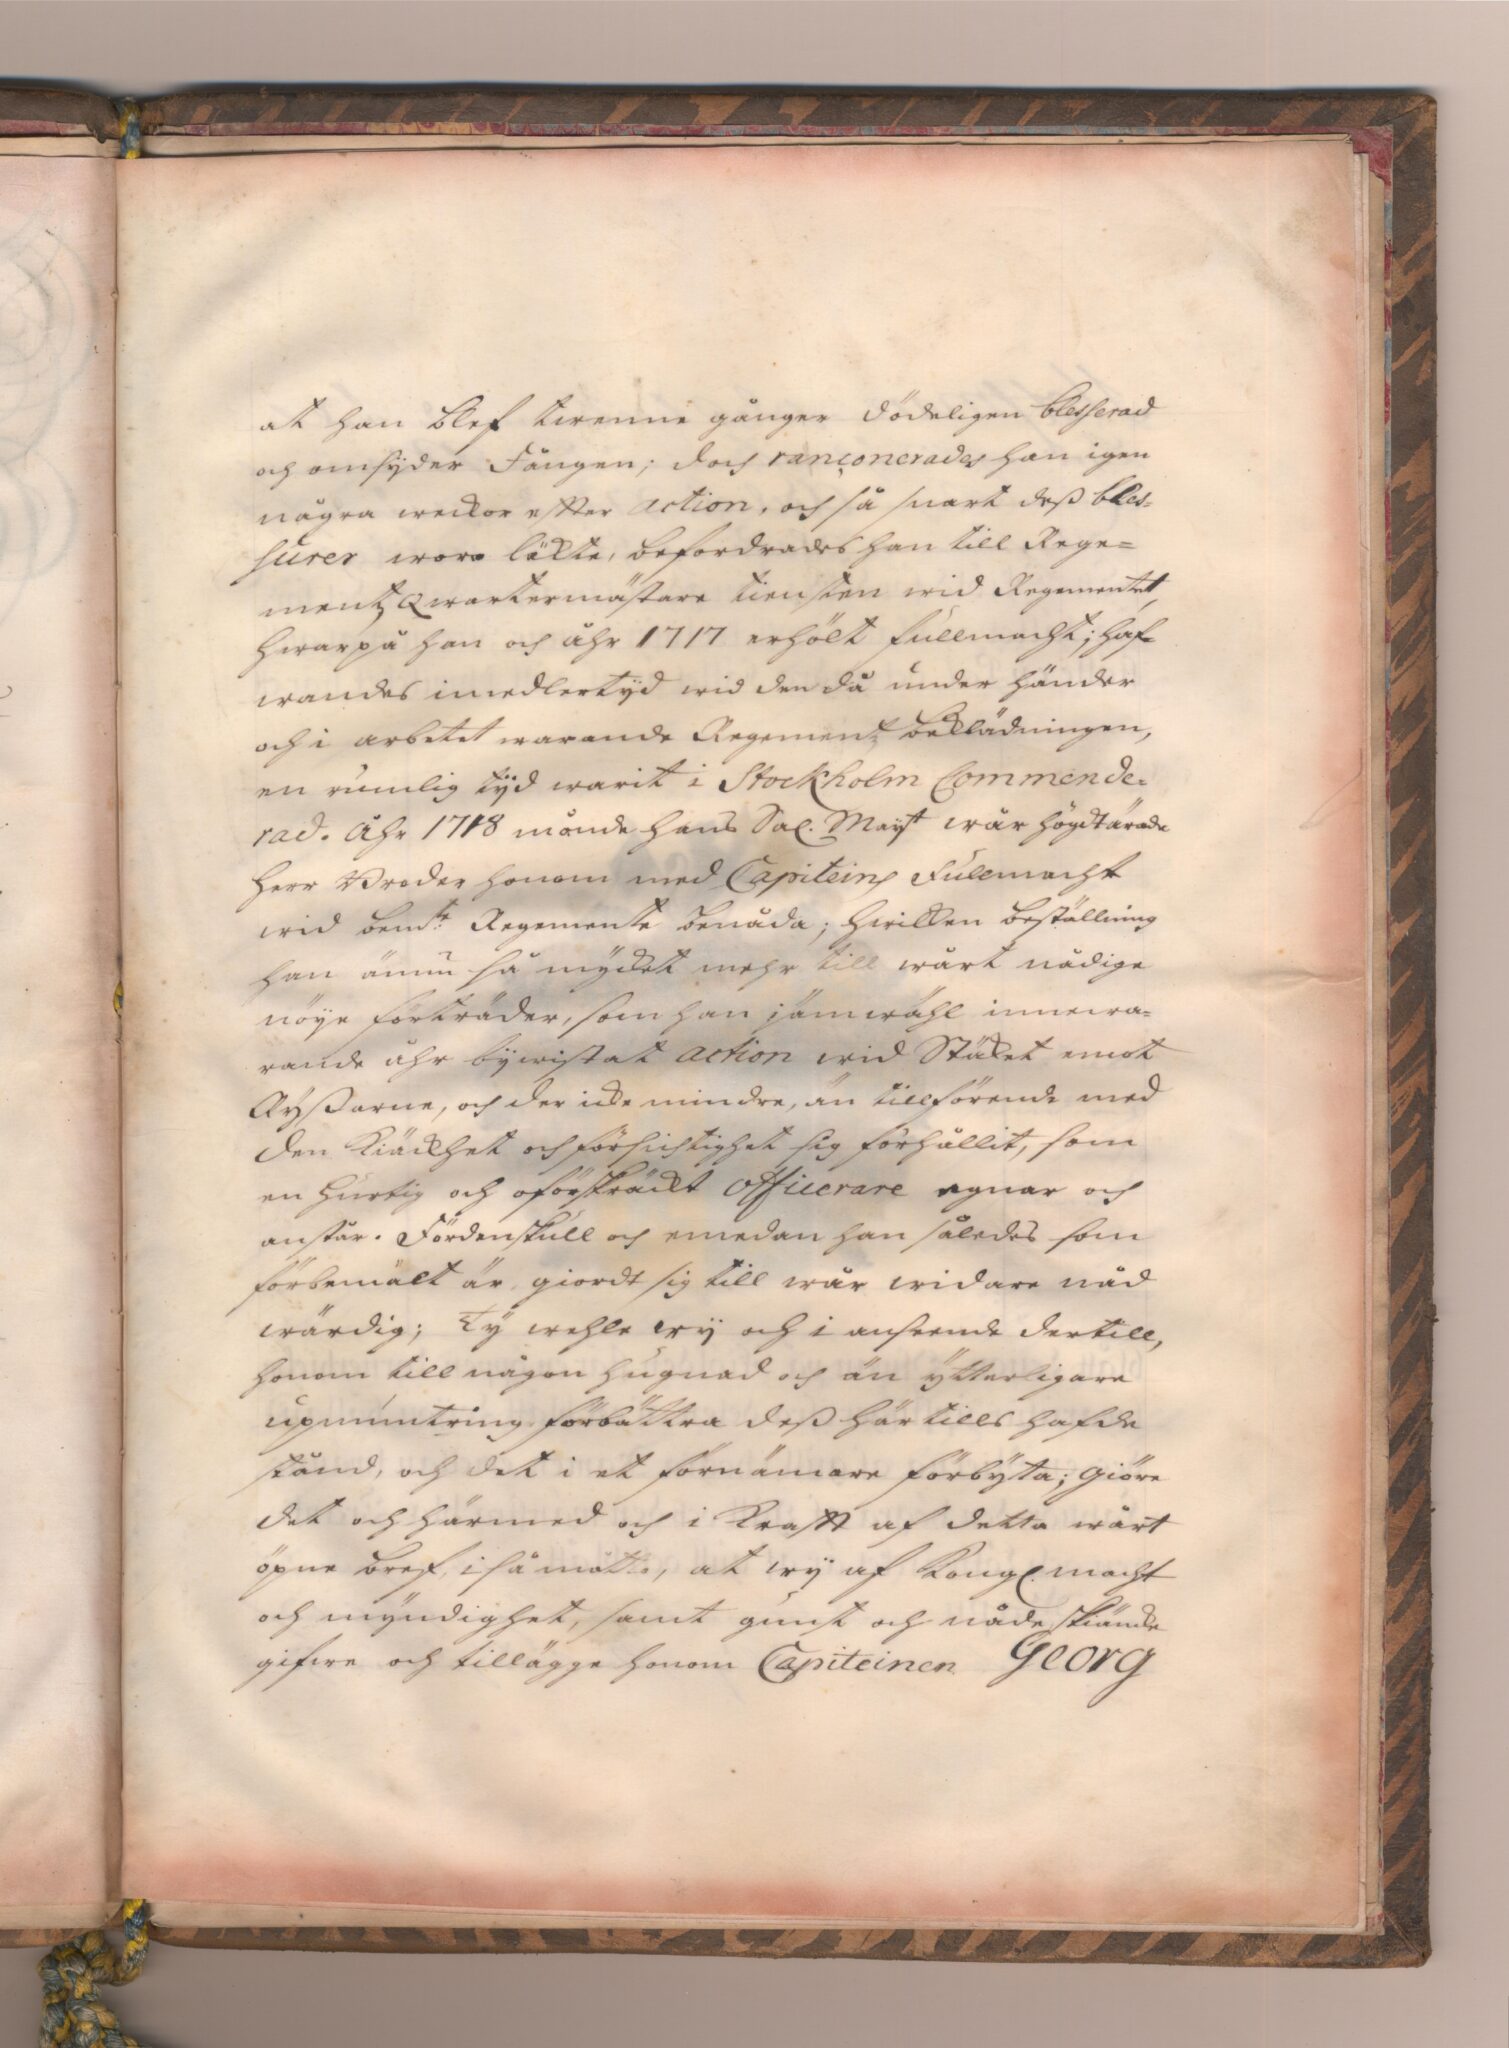 at han blef twenne gånger dödeligen blesserad
och omsyder Fången; doch rançonerades han igen
några weckor efter action, och så snart deß bles-
surer woro läkte, befordrades han till Rege=
mentz Qwartermästare tiensten wid Regementet,
hwarpå han och åhr 1717 erhölt fullmacht; haf-
wandes imedlertÿd wid den då under händer
och i arbetet warande Regementz beklädningen,
en rumlig tÿd warit i Stockholm Commende-
rad. Åhr 1718 månde hans Sal. Mayst wår högdtärade
herr Broder honom med Capiteins Fullmacht
wid bemte Regemente benåda; hwilken beställning
han ännu så mycket mehr till wårt nådige
nöye förträder, som han jämwähl innewa-
rande åhr bÿwistat action wid Stäket emot
Rÿßarne, och der icke mindre, än tillförende med
den kiäckhet och försichtighet sig förhållit, som
en hurtig och oförskräckt officerare egnar och
anstår. Fördenskull och emedan han således som
förbemält är giordt sig till wår widare nåd
wärdig; Ty wehle wÿ och i anseende dertill,
honom till någon hugnad och än ÿtterligare
upmuntring förbättra deß härtills hafde
stånd, och det i et förnämare förbÿta; giöre
det och härmed och i krafft af detta wårt
öpne bref, i så måtto, at wÿ af Kongl. macht
och mÿndighet, samt gunst och nåde skiäncke
gifwe och tillägge honom Capiteinen Georg